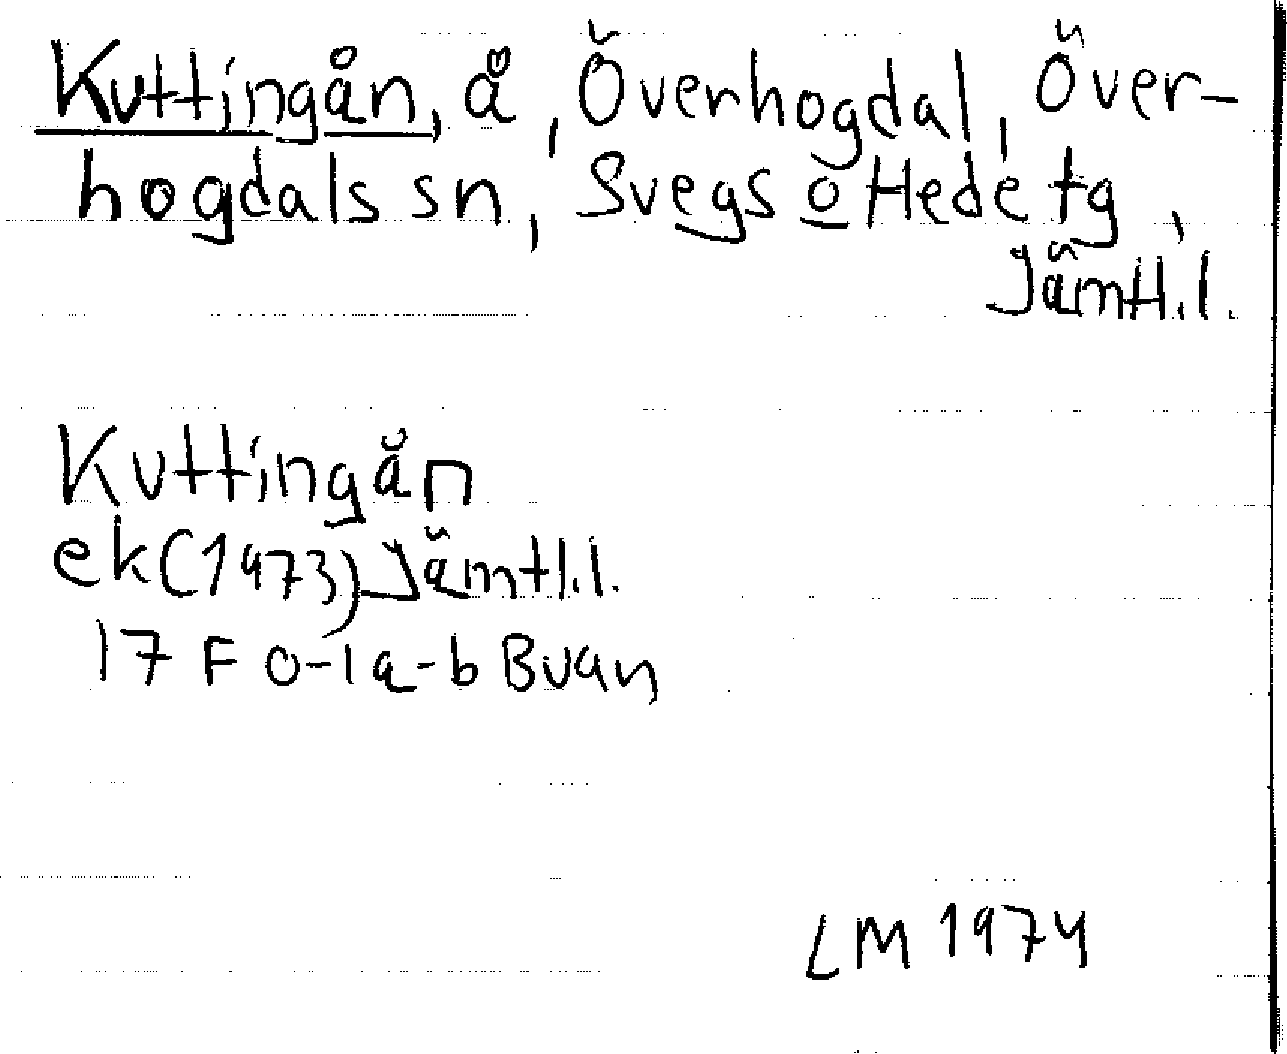 Kuttingån, å, Överhogdal, Över-
hogdals sn, Svegs o Hede tg,
Jämtl.l.
Kuttingån
ek(1973) Jämtl.l.
17 F 0-1a-b Buan
LM 1974